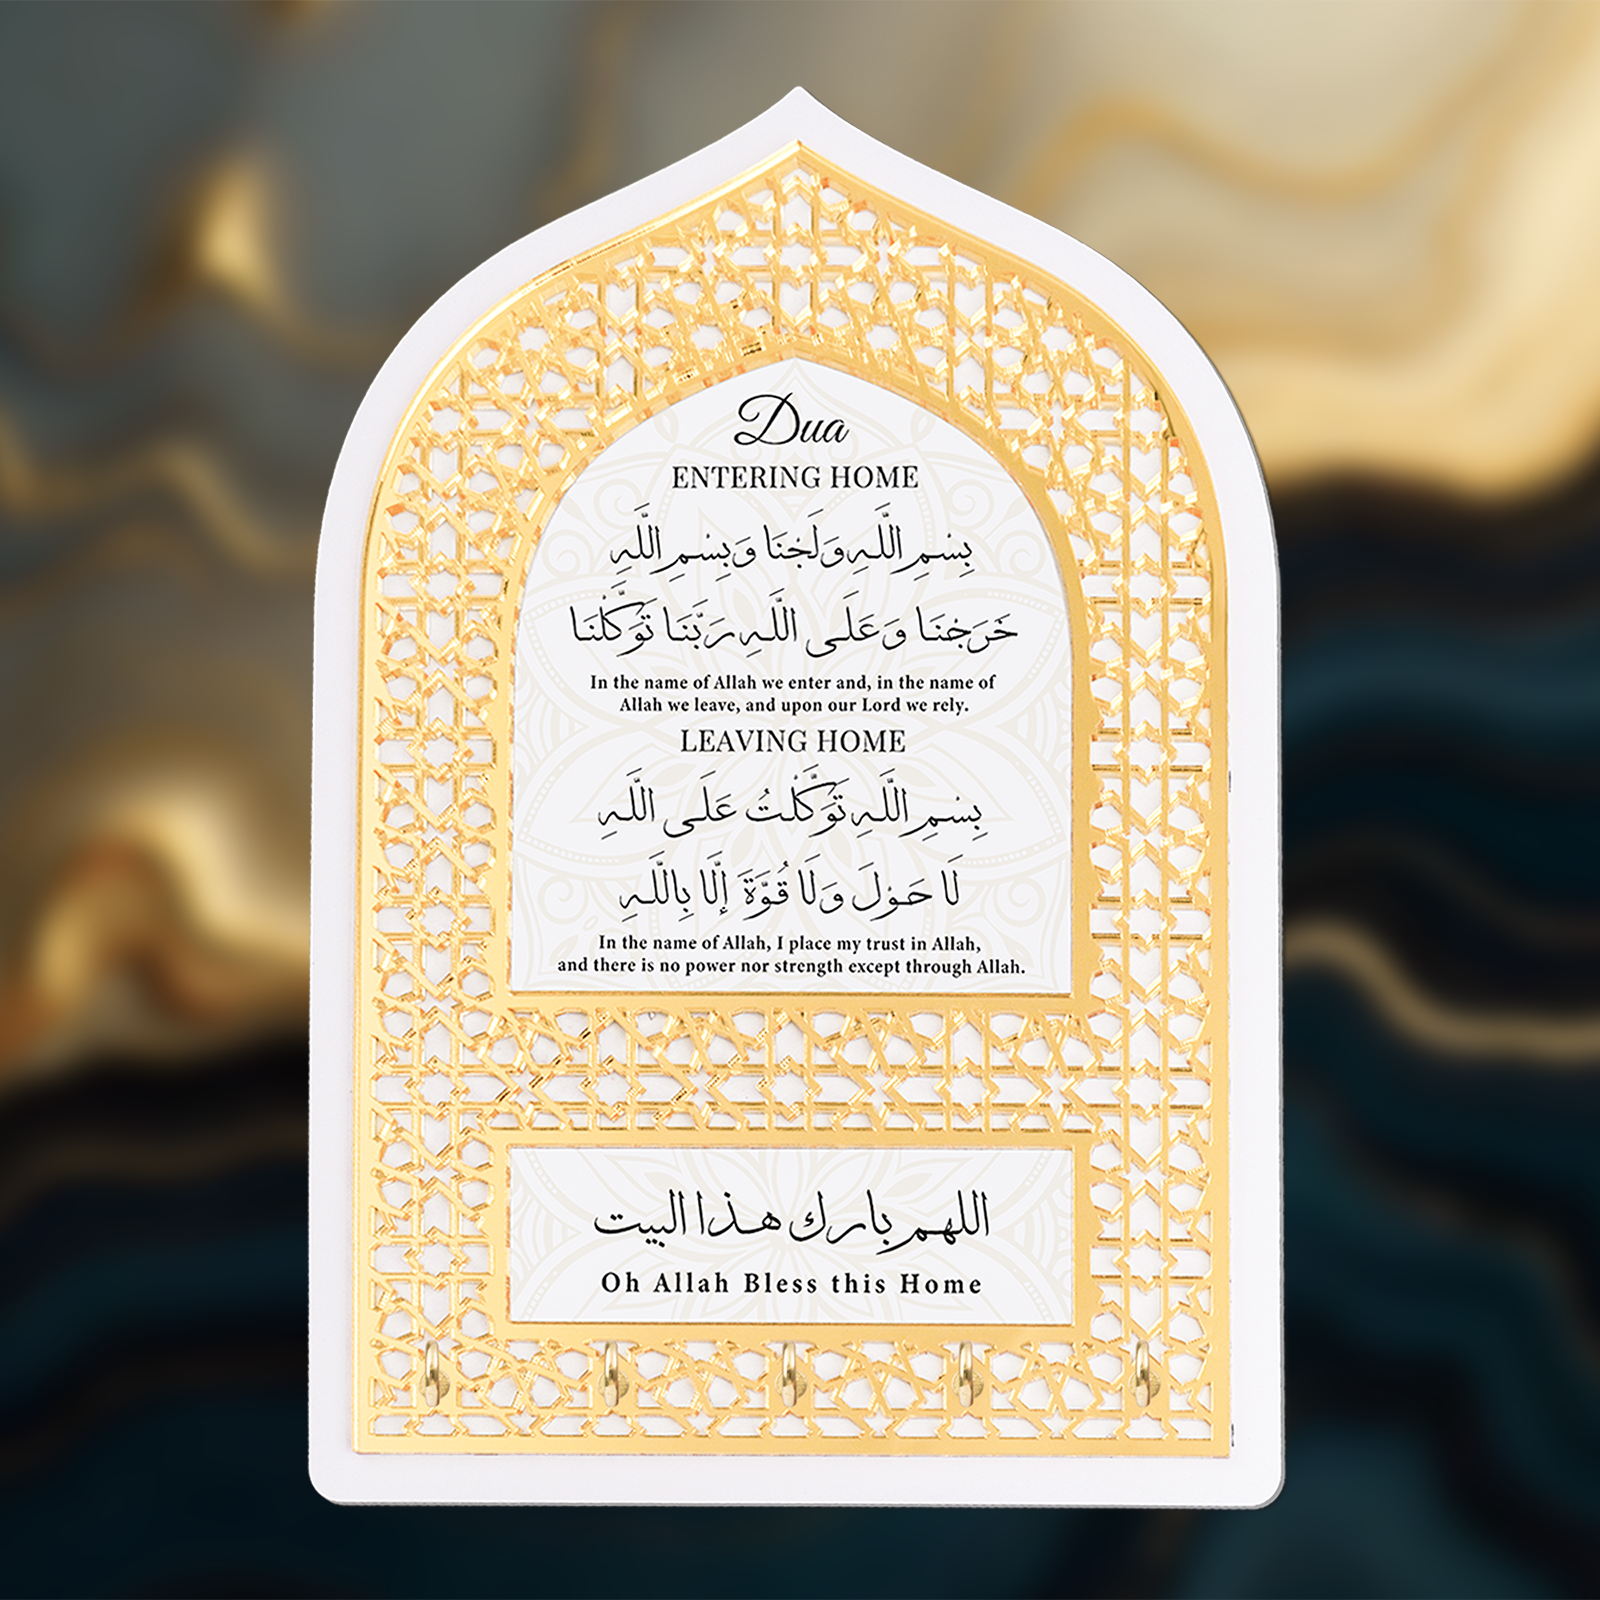 Dua
ENTERING HOME
بِسْمِ اللَّهِ وَلَجْنَا وَبِسْمِ اللَّهِ
خَرَجْنَا وَعَلَى اللَّهِ رَبَّنَا تَوَكَّلْنَا
In the name of Allah we enter and, in the name of
Allah we leave, and upon our Lord we rely.
LEAVING HOME
بِسْمِ اللَّهِ تَوَكَّلْتُ عَلَى اللَّهِ
لَا حَوْلَ وَلَا قُوَّةَ إِلَّا بِاللَّهِ
In the name of Allah, I place my trust in Allah,
and there is no power nor strength except through Allah.
اللهم بارك هذا البيت
Oh Allah Bless this Home